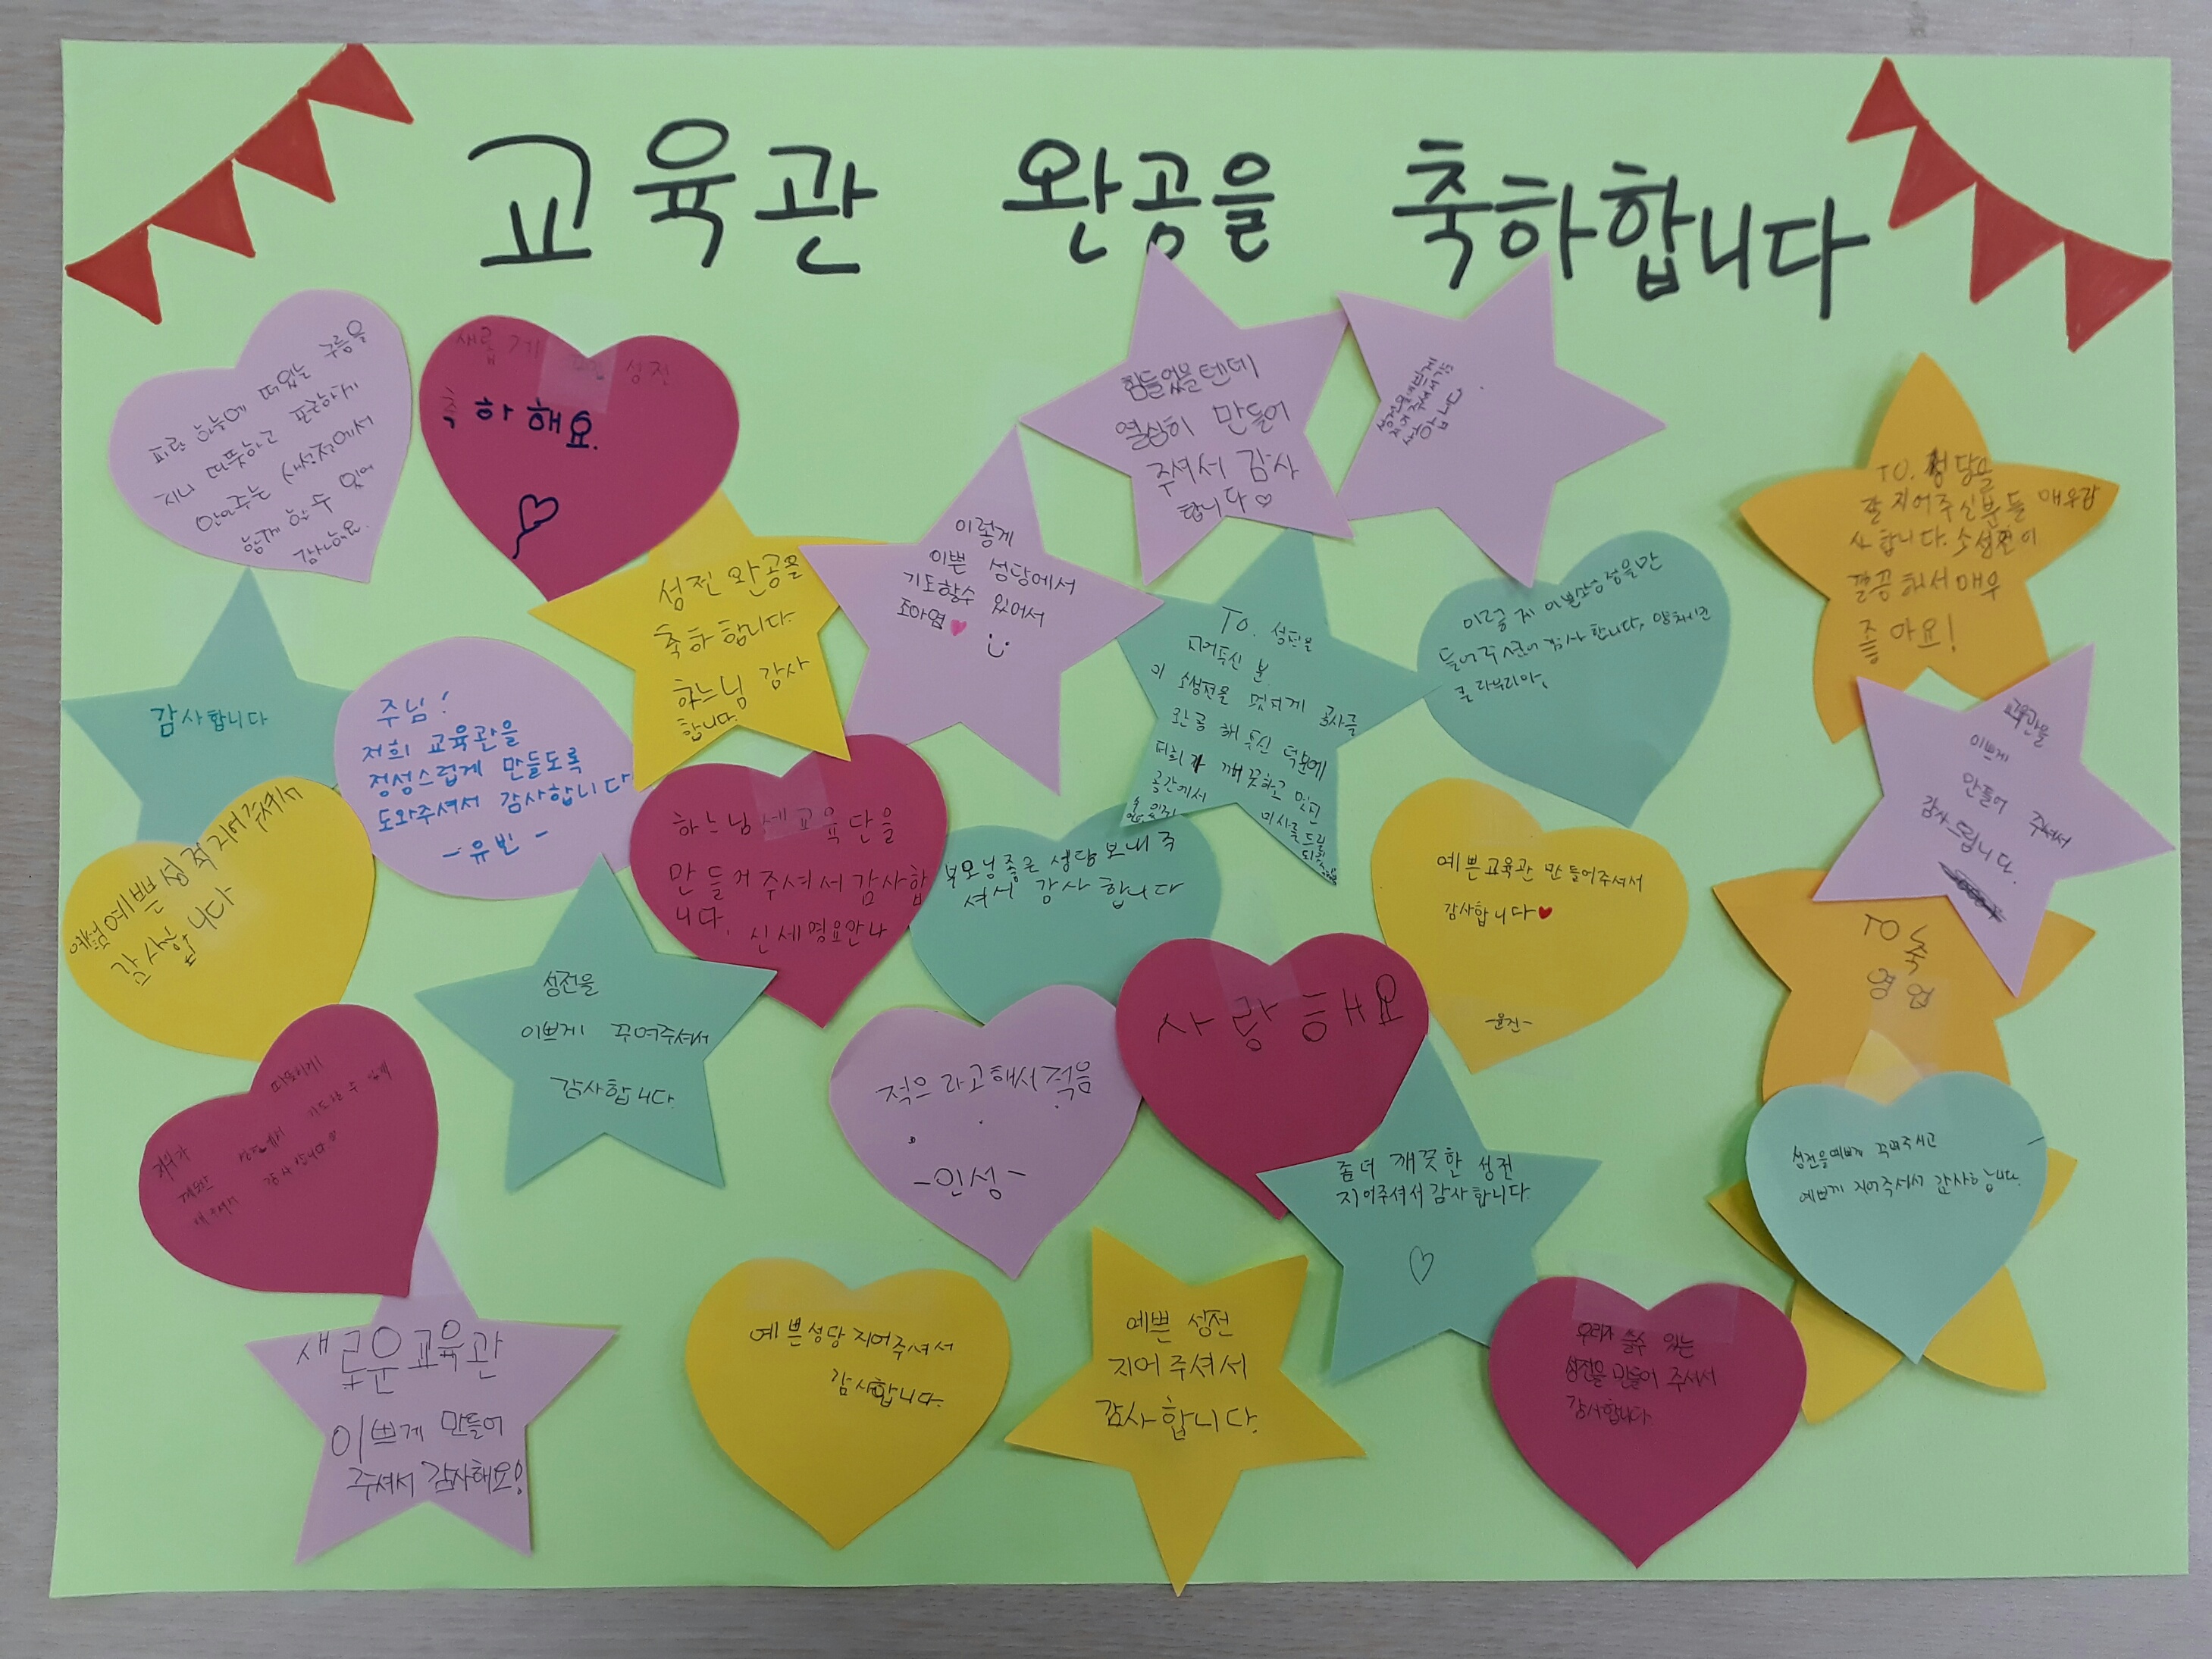 교육관 완공을 축하합니다
파란 하늘에 떠있는 구름을
지나 따뜻하고 포근하게
안아주는 새성전에서
함께 할 수 있어
감사해요.
새롭게 성전
축하해요.
힘들었을텐데
열심히 만들어
주셔서 감사
합니다♡
성전을 예쁘게
지어주셔서
TO. 성당을
잘 지어주신분들 매우감
사합니다. 소성전이
깔끔해서 매우
좋아요!
이렇게
이쁜 성당에서
기도할수 있어서
조아염♥
성전 완공을
축하합니다.
하느님 감사
합니다.
To. 성전을
지어주신 분
이 소성전을 멋지게 공사를
완공 해 주신 덕분에
저희가 깨끗하고 멋진
공간에서
미사를 드릴
수 있게
들어주셔서 감사합니다.
감사합니다
주님!
저희 교육관을
정성스럽게 만들도록
도와주셔서 감사합니다
-유빈-
교육관을
이쁘게
만들어 주셔서
감사드립니다.
예쁜성적지어주셔서
감사합니다
하느님 세교육단을
만들거주셔서 감사합
니다.
신세영요안나
부모님좋은 성당 보내주
셔서 감사합니다
예쁜교육관 만들어주셔서
감사합니다♥
-윤진-
TO 축
영업
성전을
이쁘게 꾸며주셔서
감사합니다.
적으라고해서적음
-인성-
사랑해요
저희가 따뜻하게
깨끗한 성전에서 기도할 수 있게
해주셔서 감사합니다
좀더 깨끗한 성전
지어주셔서감사합니다.
♡
성전을예쁘게 꾸며주시고
예쁘게 지어주셔서 감사합니다.
새로운교육관
이쁘게 만들어
주셔서 감사해요!
예쁜성당지어주셔서
감사합니다.
예쁜 성전
지어주셔서
감사합니다.
우리가 올수 있는
성전을 만들어 주셔서
감사합니다.